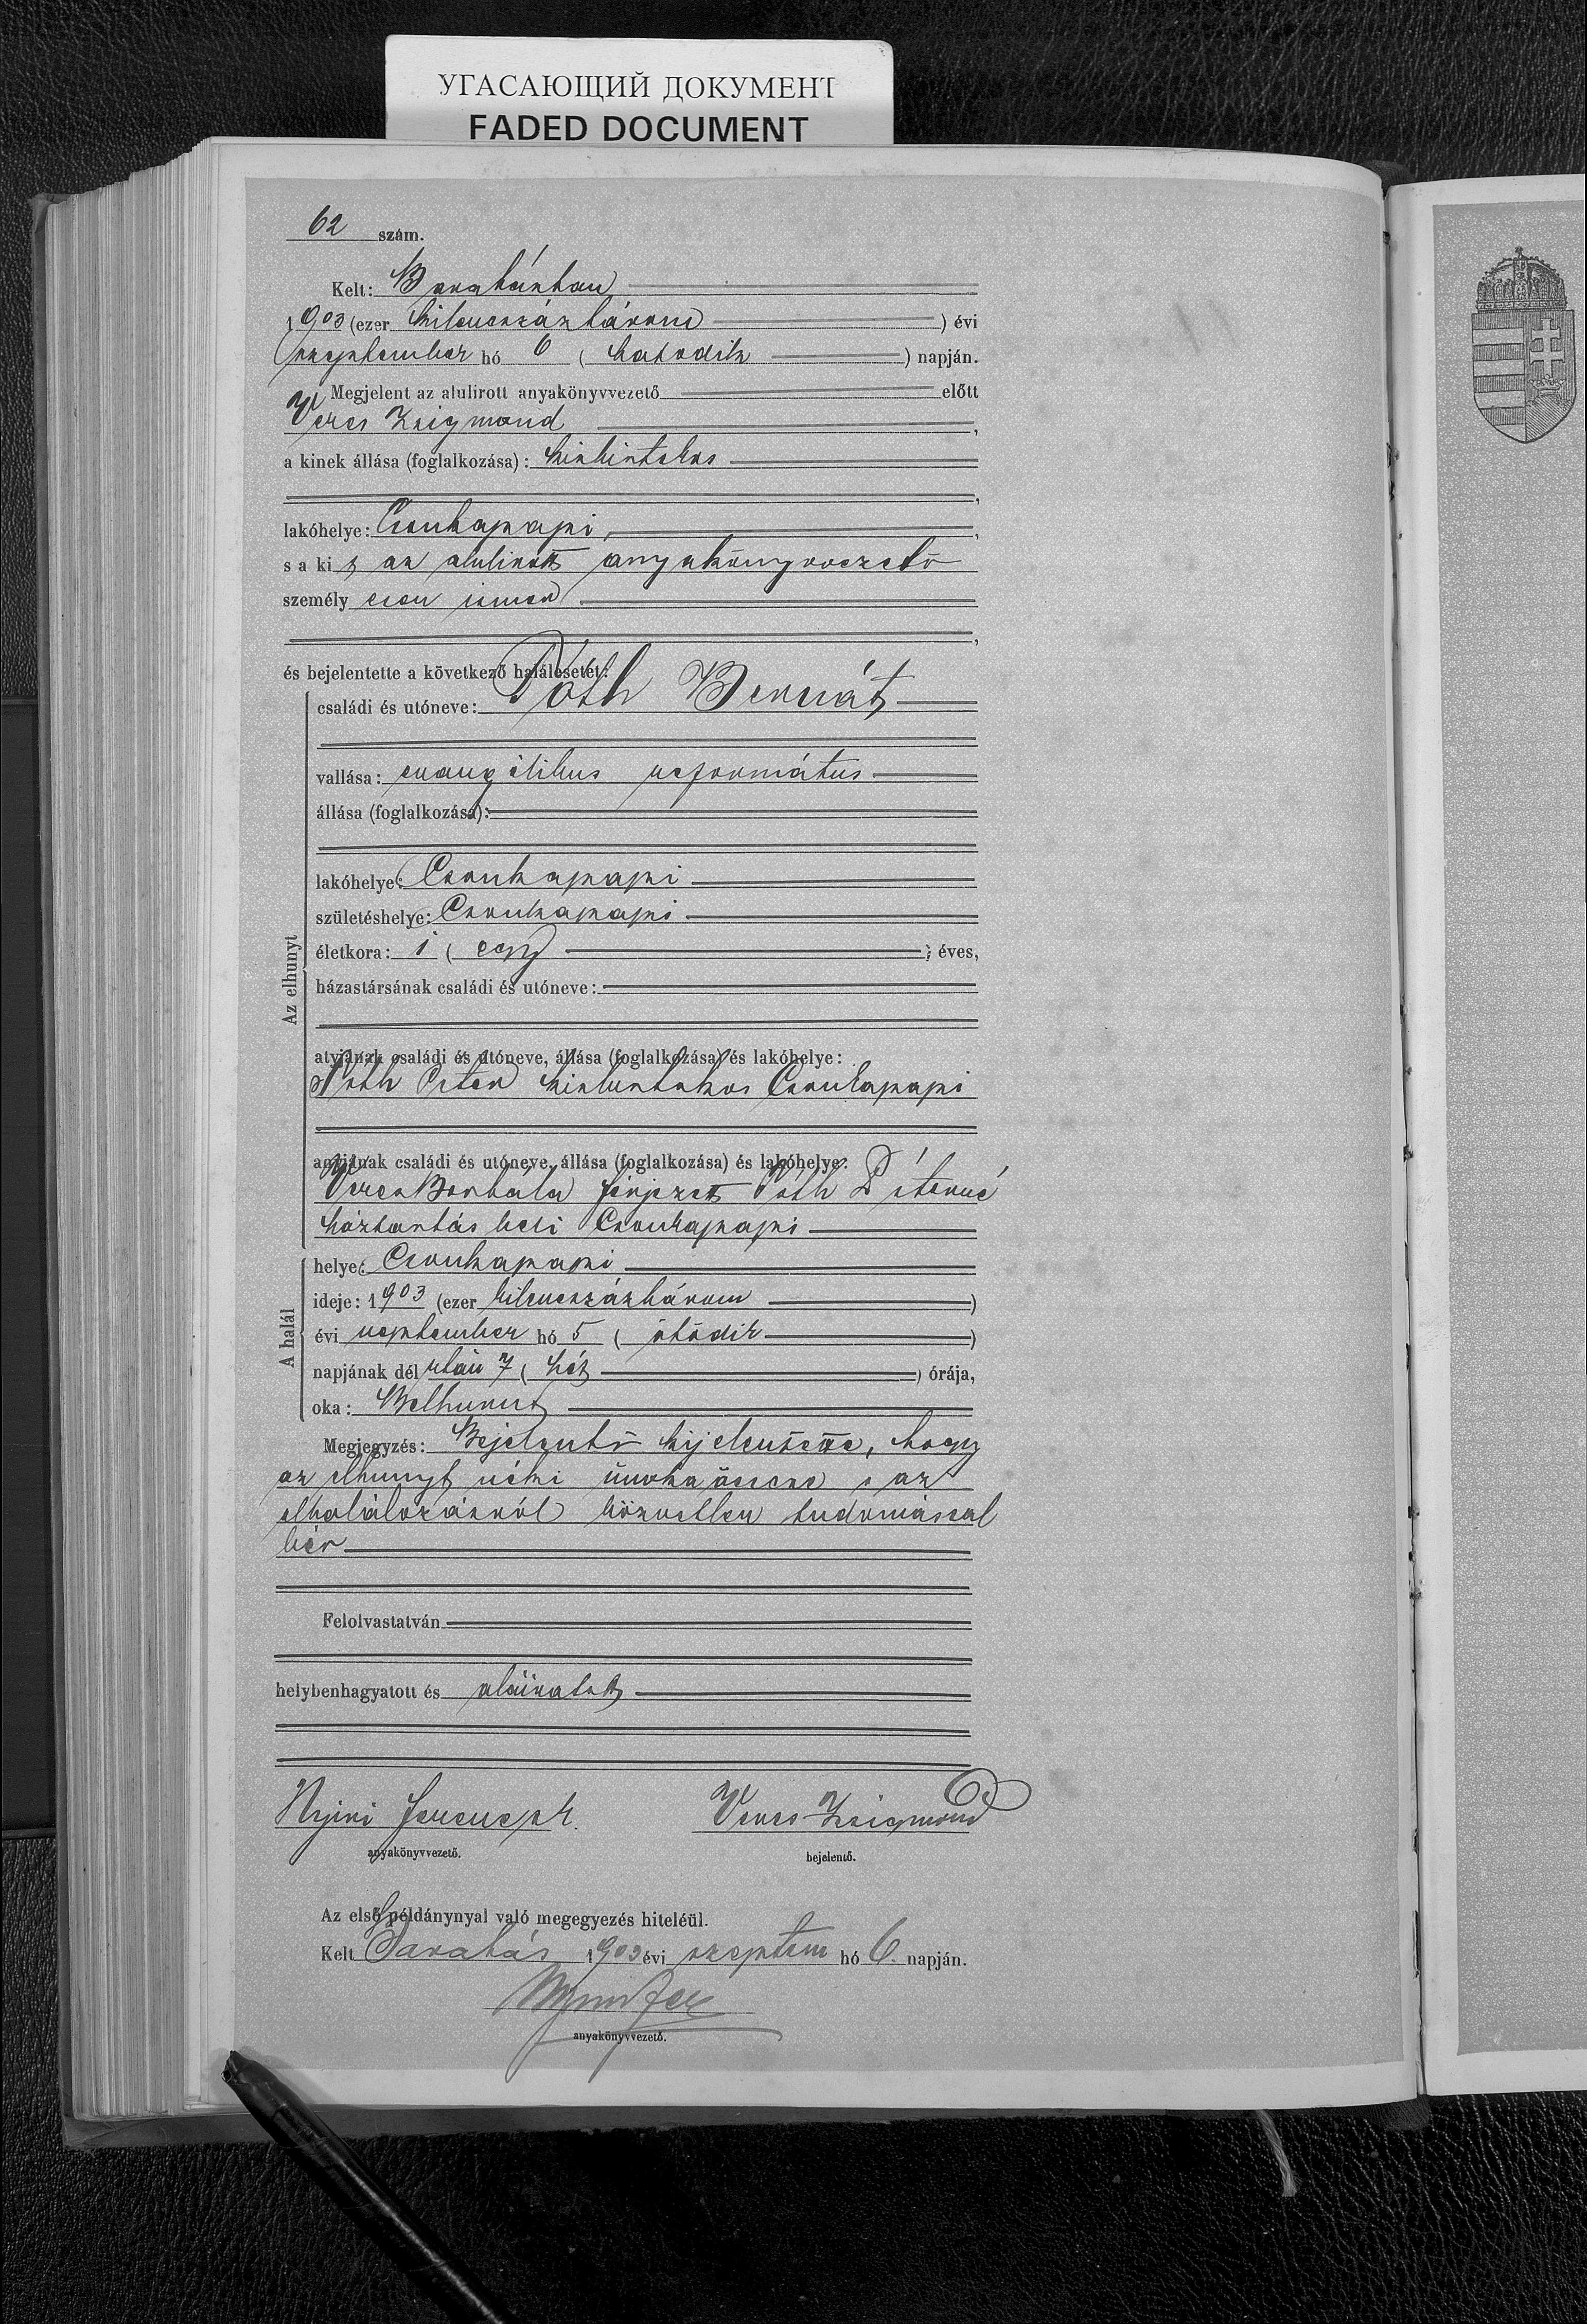 УГАСАЮЩИЙ ДОКУМЕНТ
FADED DOCUMENT
62 szám.
Kelt: Barabásban
1903 (ezer kilenczázhárom ) évi
szeptember hó 6 ( hatodik ) napján.
Megjelent az alulirott anyakönyvvezető előtt
Veres Zsigmond ,
a kinek állása (foglalkozása): kisbirtokos
lakóhelye: Csonkapapi ,
s a ki t az alulirott anyakönyvvezető
személy esen ismer
és bejelentette a következő halálesetet:
Az elhunyt
családi és utóneve: Tóth Bernát
vallása: evangélikus református
állása (foglalkozása):
lakóhelye: Csonkapapi
születéshelye: Csonkapapi
életkora: 1 ( egy ) éves,
házastársának családi és utóneve:
atyjának családi és utóneve, állása (foglalkozása) és lakóhelye:
Tóth Péter kisbirtokos Csonkapapi
anyjának családi és utóneve, állása (foglalkozása) és lakóhelye:
Veres Borbála férjezett Tóth Péterné
háztartásbeli Csonkapapi
A halál
helye: Csonkapapi
ideje: 1903 (ezer kilenczázhárom )
évi szeptember hó 5 ( ötödik )
napjának dél után 7 ( hét ) órája,
oka: Bélhurut
Megjegyzés: Bejelentő kijelentette, hogy
az elhunyt néki unokaöccse s az
elhalálozásról közvetlen tudomással
bír
Felolvastatván
helybenhagyatott és aláíratott
Ferencz Veres Zsigmond
anyakönyvvezető. bejelentő.
Az első példánynyal való megegyezés hiteléül.
Kelt Barabás 1903 évi szeptem hó 6. napján.
anyakönyvvezető.